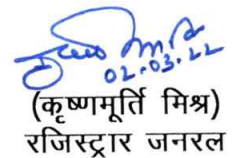 02.03.22
(कृष्णमूर्ति मिश्र)
रजिस्ट्रार जनरल